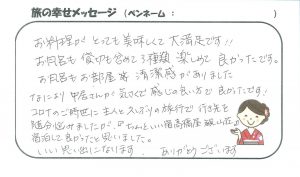 旅の幸せメッセージ (ペンネーム：　　　)
お料理が とっても美味しくて大満足です!!
お風呂も 貸切も含めて3種類 楽しめて 良かったです。
お風呂もお部屋も 清潔感がありました
なにより 中居さんが 気さくで 感じの良い方で良かったです!
コロナのご時世に主人と 久しぶりの旅行で 行き先を
随分悩みましたが、
宿泊して良かったと思いました。
いい思い出になります。 ありがとうございます